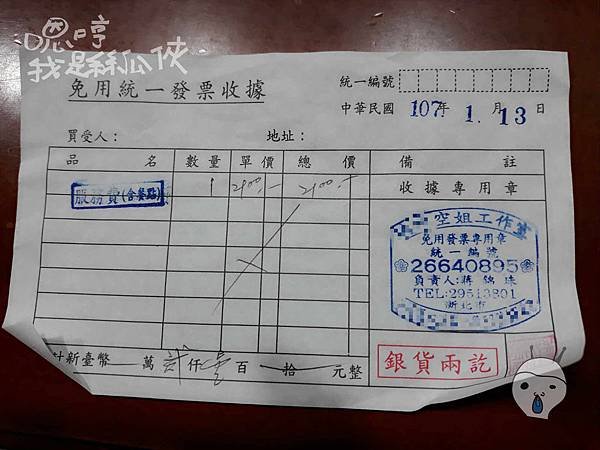 嗯哼
我是絲瓜俠
免用統一發票收據
統一編號
中華民國 107年 1.月 13日
買受人： 地址：
品名 數量 單價 總價 備註
服務費(含餐點) 1 2100.- 2100.- 收據專用章
空姐工作室
免用發票專用章
統一編號
26640895
負責人:蔣鶴珠
TEL:29513801
新北市
計新臺幣 萬 貳仟壹百 拾 元整
銀貨兩訖